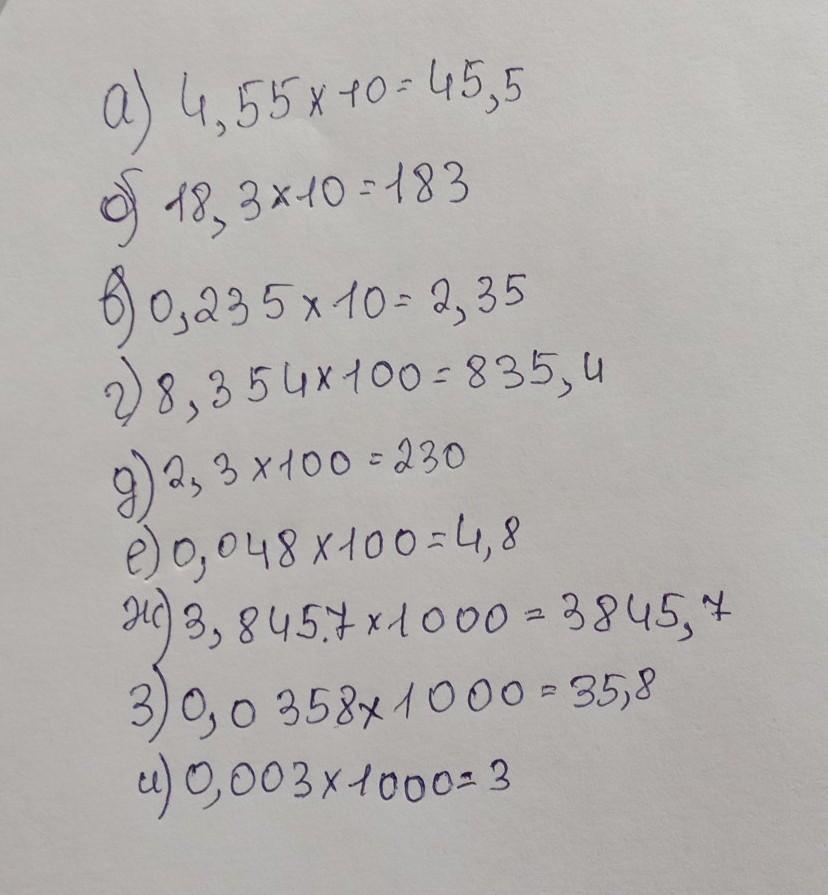 а) 4,55 × 10 = 45,5
б) 18,3 × 10 = 183
в) 0,235 × 10 = 2,35
г) 8,354 × 100 = 835,4
д) 2,3 × 100 = 230
е) 0,048 × 100 = 4,8
ж) 3,845.7 × 1000 = 3845,7
з) 0,0358 × 1000 = 35,8
и) 0,003 × 1000 = 3